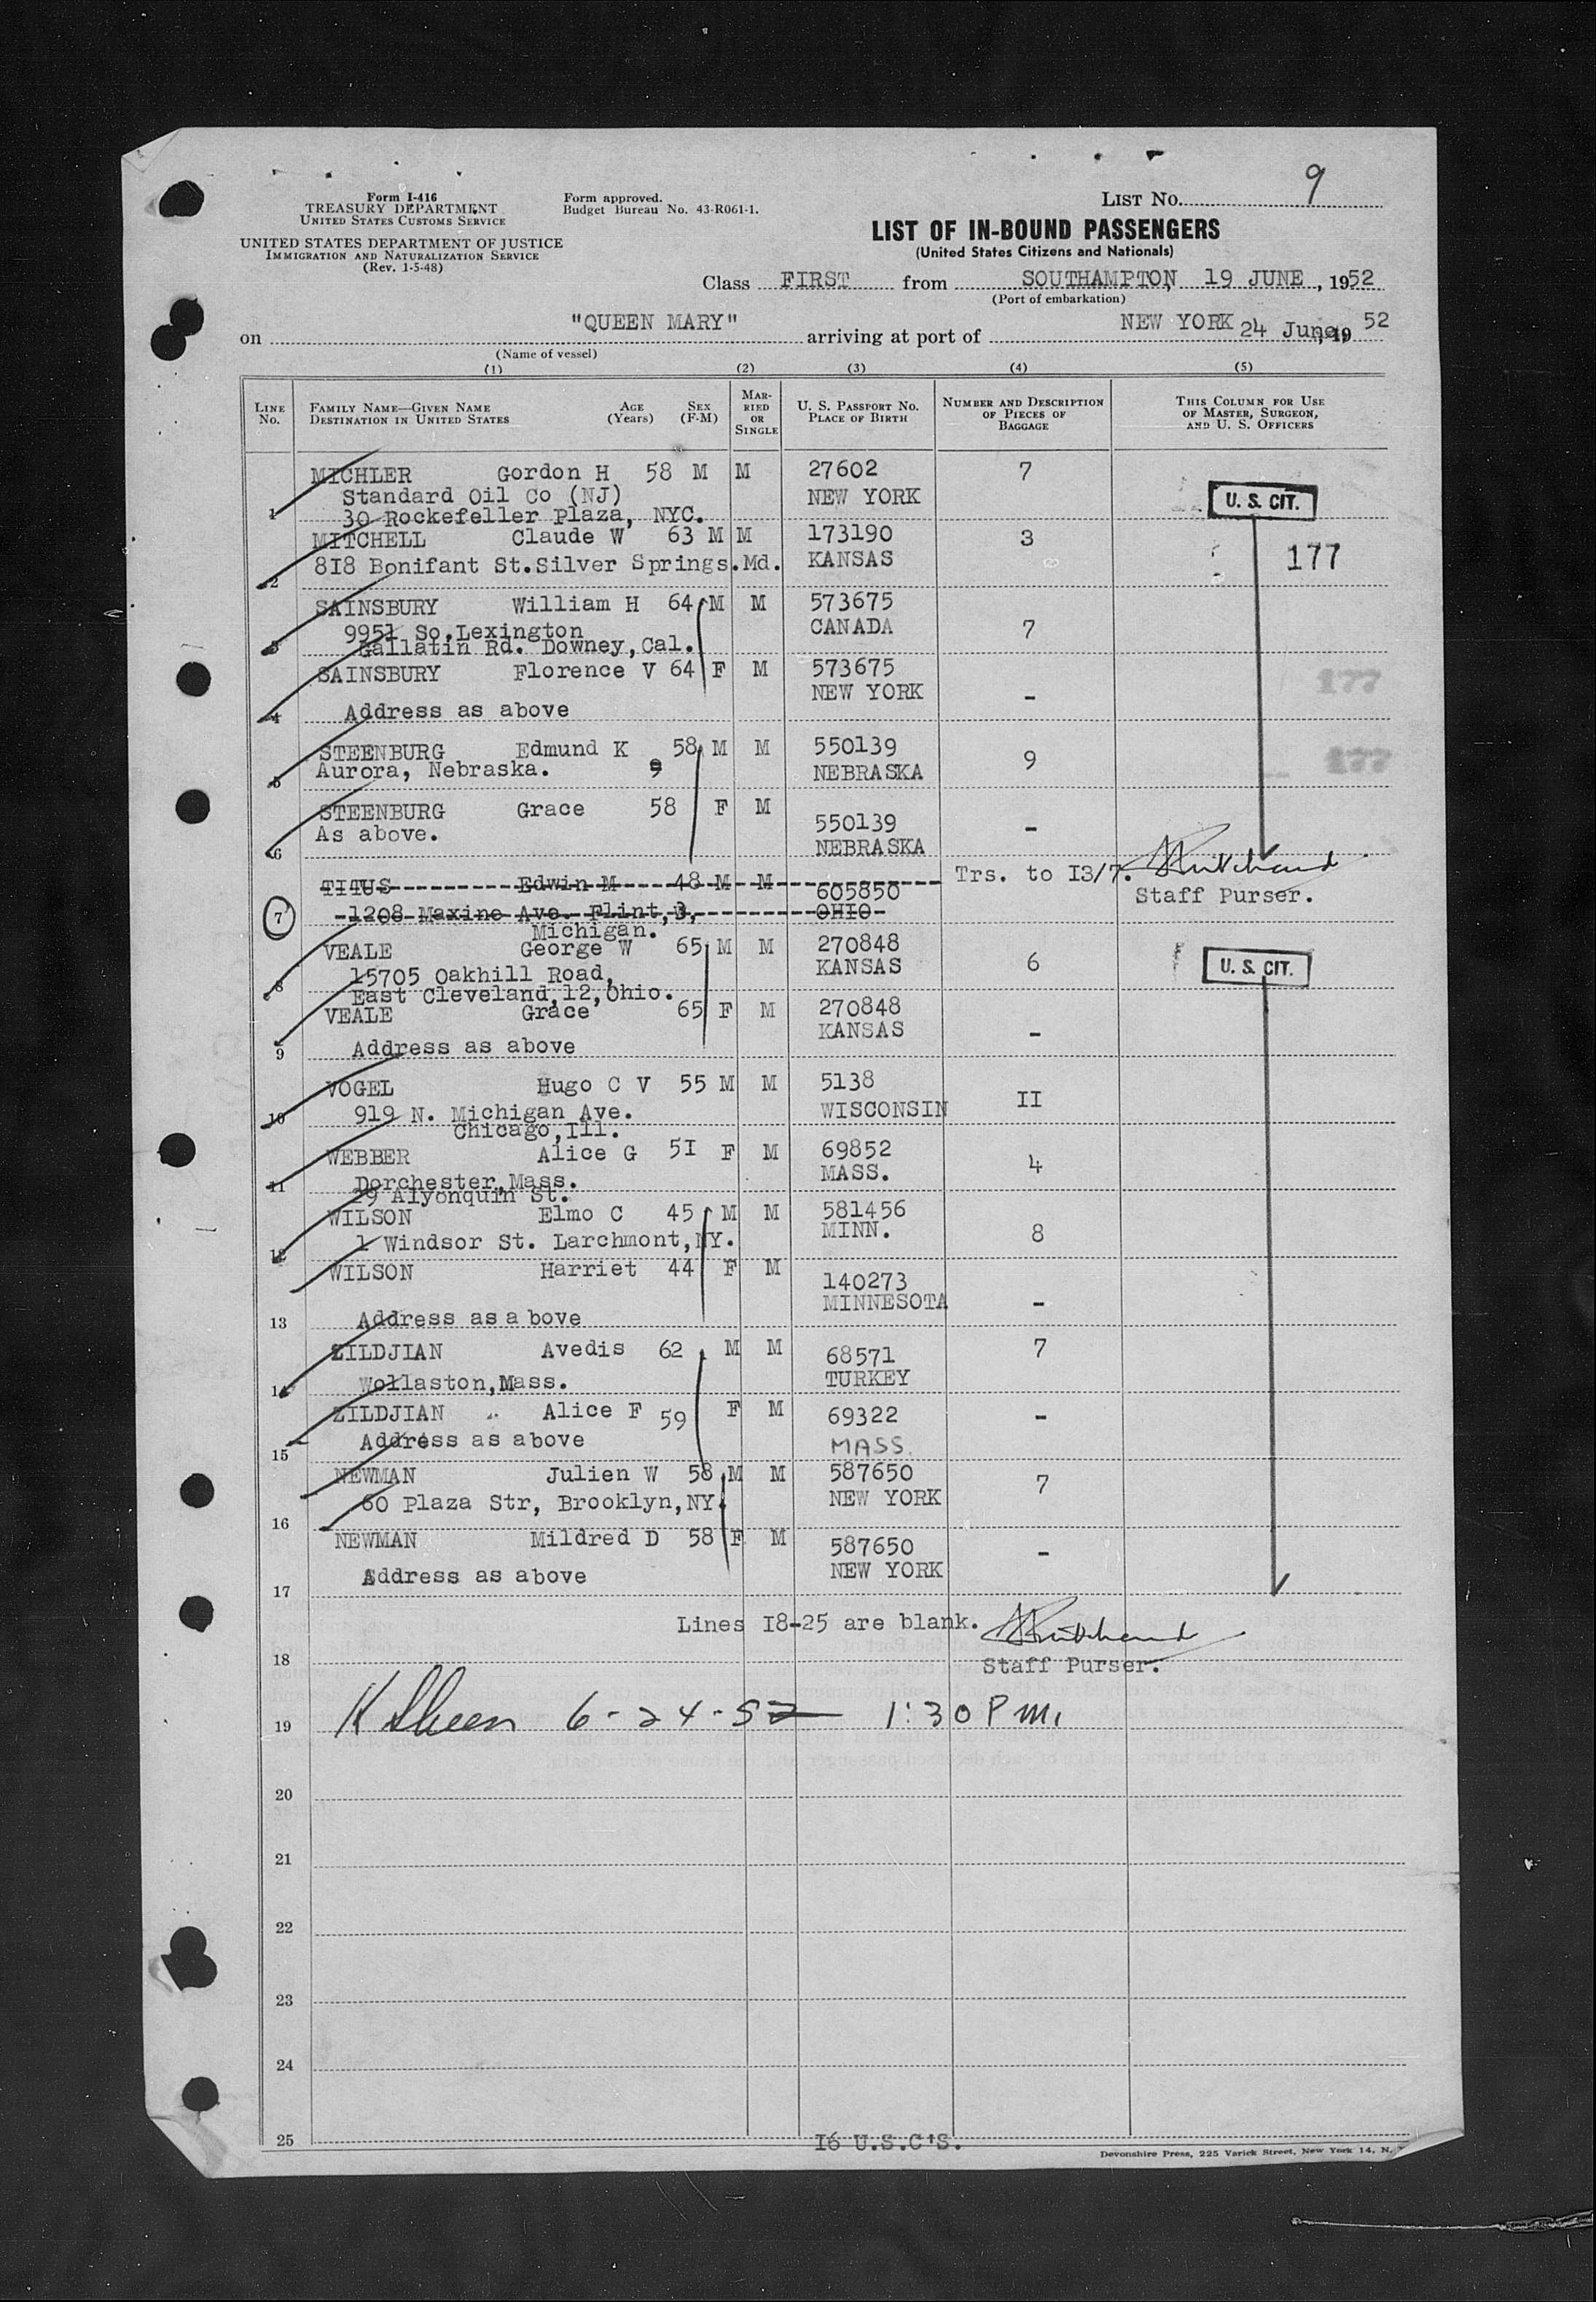 Form I-416
TREASURY DEPARTMENT
UNITED STATES CUSTOMS SERVICE
UNITED STATES DEPARTMENT OF JUSTICE
IMMIGRATION AND NATURALIZATION SERVICE
(Rev. 1-5-48)
Form approved.
Budget Bureau No. 43-R061-1.
LIST NO. 9
LIST OF IN-BOUND PASSENGERS
(United States Citizens and Nationals)
Class FIRST from SOUTHAMPTON, 19 JUNE, 1952
(Port of embarkation)
on "QUEEN MARY" arriving at port of NEW YORK 24 June, 19 52
(Name of vessel)
(1) (2) (3) (4) (5)
LINE NO. FAMILY NAME—GIVEN NAME DESTINATION IN UNITED STATES AGE (Years) SEX (F-M) MARRIED OR SINGLE U. S. PASSPORT NO. PLACE OF BIRTH NUMBER AND DESCRIPTION OF PIECES OF BAGGAGE THIS COLUMN FOR USE OF MASTER, SURGEON, AND U. S. OFFICERS
MICHLER Gordon H 58 M M 27602 7
Standard Oil Co (NJ) NEW YORK U. S. CIT.
1 30 Rockefeller Plaza, NYC.
MITCHELL Claude W 63 M M 173190 3
818 Bonifant St.Silver Springs.Md. KANSAS 177
2
SAINSBURY William H 64 M M 573675
9951 So.Lexington CANADA 7
3 Gallatin Rd. Downey,Cal.
SAINSBURY Florence V 64 F M 573675
NEW YORK - 177
4 Address as above
STEENBURG Edmund K 58 M M 550139 9
Aurora, Nebraska. 9 NEBRASKA 177
5
STEENBURG Grace 58 F M 550139 -
As above. NEBRASKA
6
TITUS Edwin M 48 M M 605850 Trs. to I3/7.
7 1208 Maxine Ave. Flint,3, OHIO Staff Purser.
Michigan.
VEALE George W 65 M M 270848 6
15705 Oakhill Road, KANSAS U. S. CIT.
8 East Cleveland,12,Ohio.
VEALE Grace 65 F M 270848
KANSAS -
9 Address as above
VOGEL Hugo C V 55 M M 5138
10 919 N. Michigan Ave. WISCONSIN II
Chicago,Ill.
WEBBER Alice G 5I F M 69852 4
11 Dorchester,Mass. MASS.
29 Alyonquin St.
WILSON Elmo C 45 M M 581456
12 1 Windsor St. Larchmont,NY. MINN. 8
WILSON Harriet 44 F M 140273
MINNESOTA -
13 Address as a bove
ZILDJIAN Avedis 62 M M 68571 7
14 Wollaston,Mass. TURKEY
ZILDJIAN Alice F 59 F M 69322 -
15 Address as above MASS.
NEWMAN Julien W 58 M M 587650 7
60 Plaza Str, Brooklyn,NY. NEW YORK
16
NEWMAN Mildred D 58 F M 587650 -
17 Address as above NEW YORK
Lines I8-25 are blank.
18 Staff Purser.
19 6-24-52 1:30 PM.
20
21
22
23
24
25 I6 U.S.C'S.
Devonshire Press, 225 Varick Street, New York 14, N.